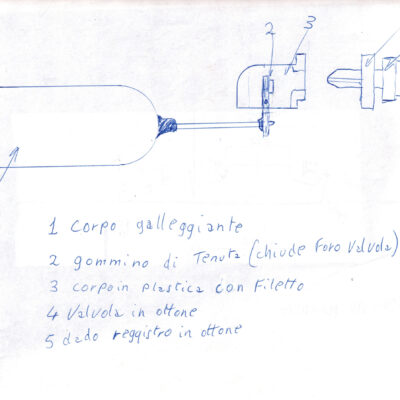 2 3
1 Corpo galleggiante
2 gommino di Tenuta (chiude Foro Valvola)
3 corpoin plastica con Filetto
4 Valvola in ottone
5 dado reggistro in ottone